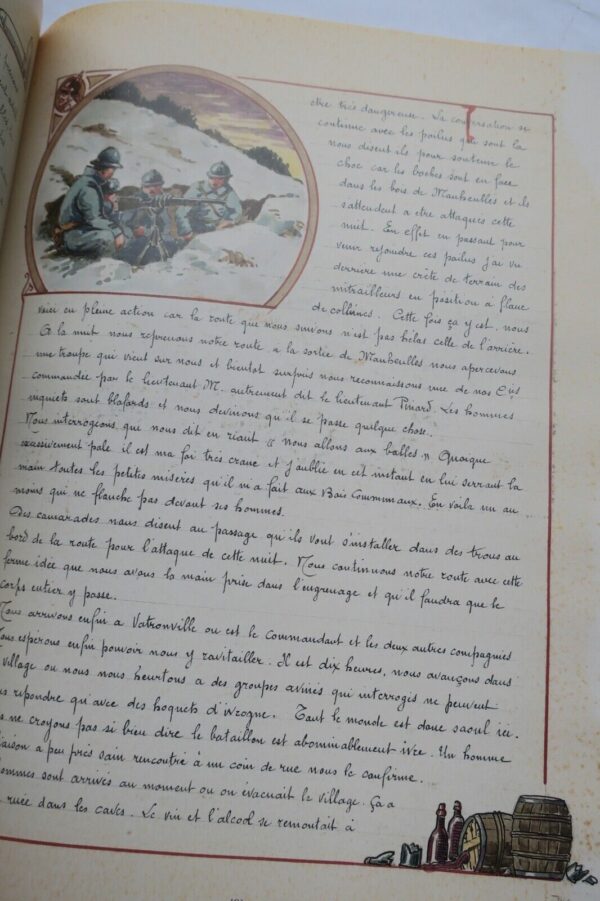 etre très dangereuse. La conversation se
continue avec les poilus que sont la
nous disent ils pour soutenir le
choc car les boches sont en face
dans les bois de Manheulles et ils
s'attendent a etre attaqués cette
nuit. En effet en passant pour
venir rejoindre ces poilus j'ai vu
derrière une crête de terrain des
mitrailleurs en position a flanc
de collines. Cette fois ça y est, nous
voici en pleine action car la route que nous suivons n'est pas hélas celle de l'arrière.
A la nuit nous reprenons notre route, a la sortie de Manheulles nous apercevons
une troupe qui vient sur nous et bientot surpris nous reconnaissons une de nos Cies
commandée par le lieutenant M. autrement dit le lieutenant Pinard. Les hommes
inquiets sont blafards et nous devinons qu'il se passe quelque chose.
Nous interrogeons que nous dit en riant " nous allons aux balles " Quoique
excessivement pale il est ma foi très crane et j'oublie en cet instant en lui serrant la
main toutes les petites misères qu'il m'a fait aux Bois Communaux. En voila un au
moins qui ne flanche pas devant ses hommes.
Des camarades nous disent au passage qu'ils vont s'installer dans des trous au
bord de la route pour l'attaque de cette nuit. Nous continuons notre route avec cette
ferme idée que nous avons la main prise dans l'engrenage et qu'il faudra que le
corps entier y passe.
Nous arrivons enfin a Vatronville ou est le commandant et les deux autres compagnies
Nous espérons enfin pouvoir nous y ravitailler. Il est dix heures, nous avançons dans
village ou nous nous heurtons a des groupes avinés qui interrogés ne peuvent
repondre qu'avec des hoquets d'ivrogne. Tout le monde est donc saoul ici.
ne croyons pas si bien dire le bataillon est abominablement ivre. Un homme
liaison a peu près sain rencontré à un coin de rue nous le confirme.
hommes sont arrivés au moment ou on évacuait le village. Ça a
ruée dans les caves. Le vin et l'alcool se remontait à